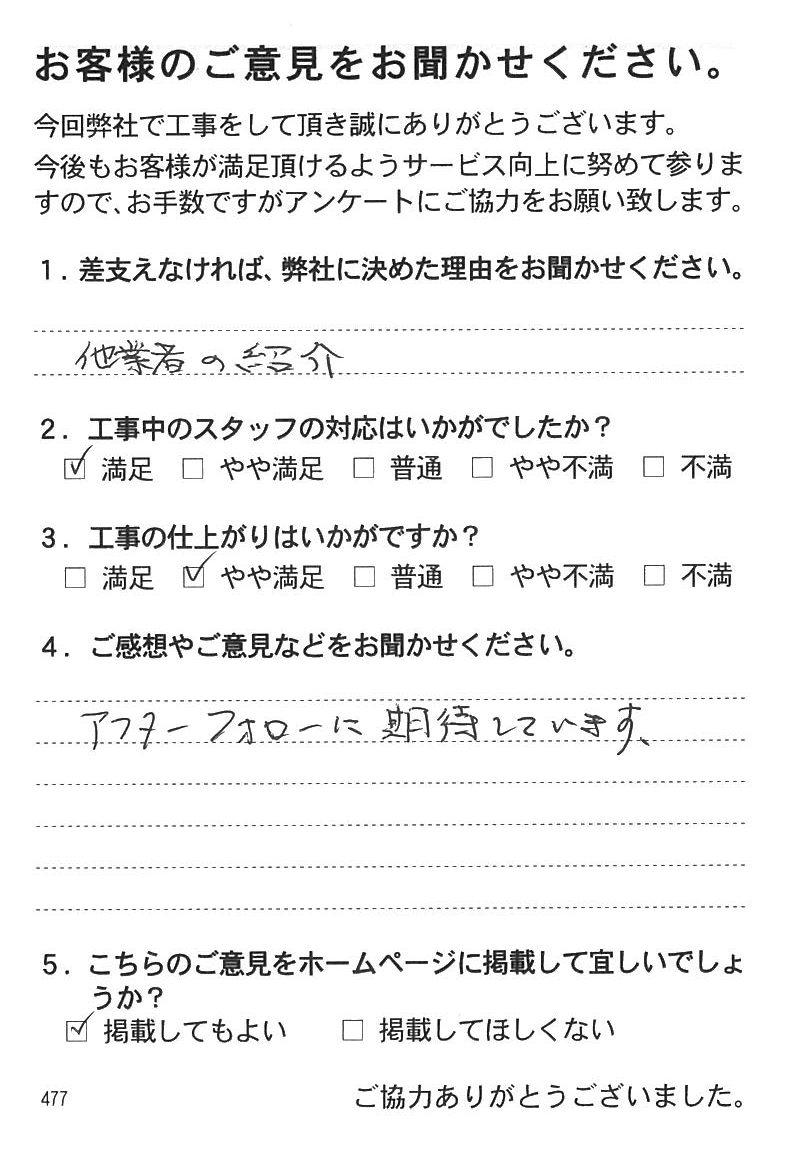 お客様のご意見をお聞かせください。
今回弊社で工事をして頂き誠にありがとうございます。
今後もお客様が満足頂けるようサービス向上に努めて参りま
すので、お手数ですがアンケートにご協力をお願い致します。
1. 差支えなければ、弊社に決めた理由をお聞かせください。
他業者の紹介
2. 工事中のスタッフの対応はいかがでしたか？
☑ 満足 □ やや満足 □ 普通 □ やや不満 □ 不満
3. 工事の仕上がりはいかがですか？
□ 満足 ☑ やや満足 □ 普通 □ やや不満 □ 不満
4. ご感想やご意見などをお聞かせください。
アフターフォローに期待しています、
5. こちらのご意見をホームページに掲載して宜しいでしょ
うか？
☑ 掲載してもよい □ 掲載してほしくない
477 ご協力ありがとうございました。